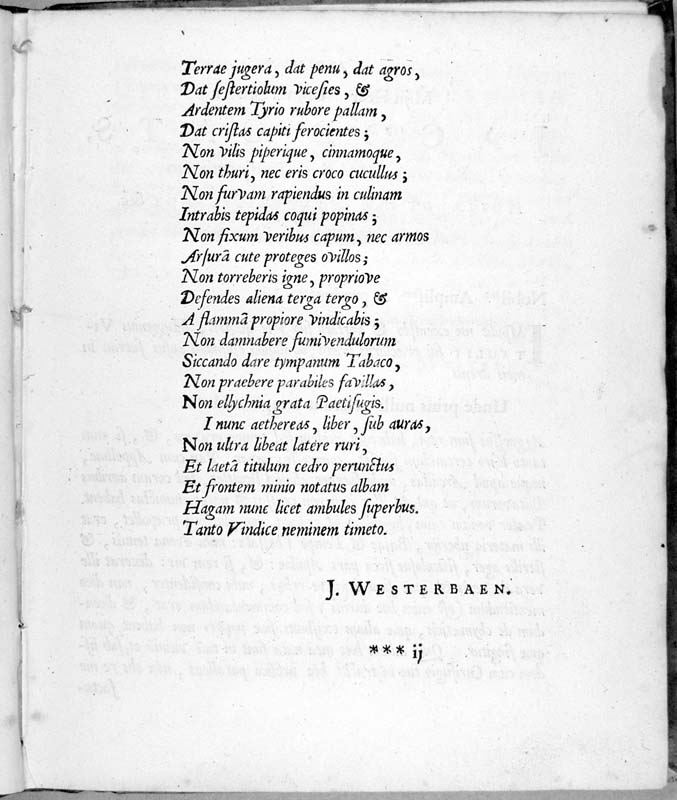 Terrae jugera, dat penu, dat agros,
Dat sestertiolum vicesies, &
Ardentem Tyrio rubore pallam,
Dat cristas capiti ferocientes;
Non vilis piperique, cinnamoque,
Non thuri, nec eris croco cucullus;
Non furvam rapiendus in culinam
Intrabis tepidas coqui popinas;
Non fixum veribus capum, nec armos
Arsurâ cute proteges ovillos;
Non torreberis igne, propriove
Defendes aliena terga tergo, &
A flammâ propiore vindicabis;
Non damnabere fumivendulorum
Siccando dare tympanum Tabaco,
Non praebere parabiles favillas,
Non ellychnia grata Paetisugis.
I nunc aethereas, liber, sub auras,
Non ultra libeat latere ruri,
Et laetâ titulum cedro perunctus
Et frontem minio notatus albam
Hagam nunc licet ambules superbus.
Tanto Vindice neminem timeto.
J. WESTERBAEN.
*** ij